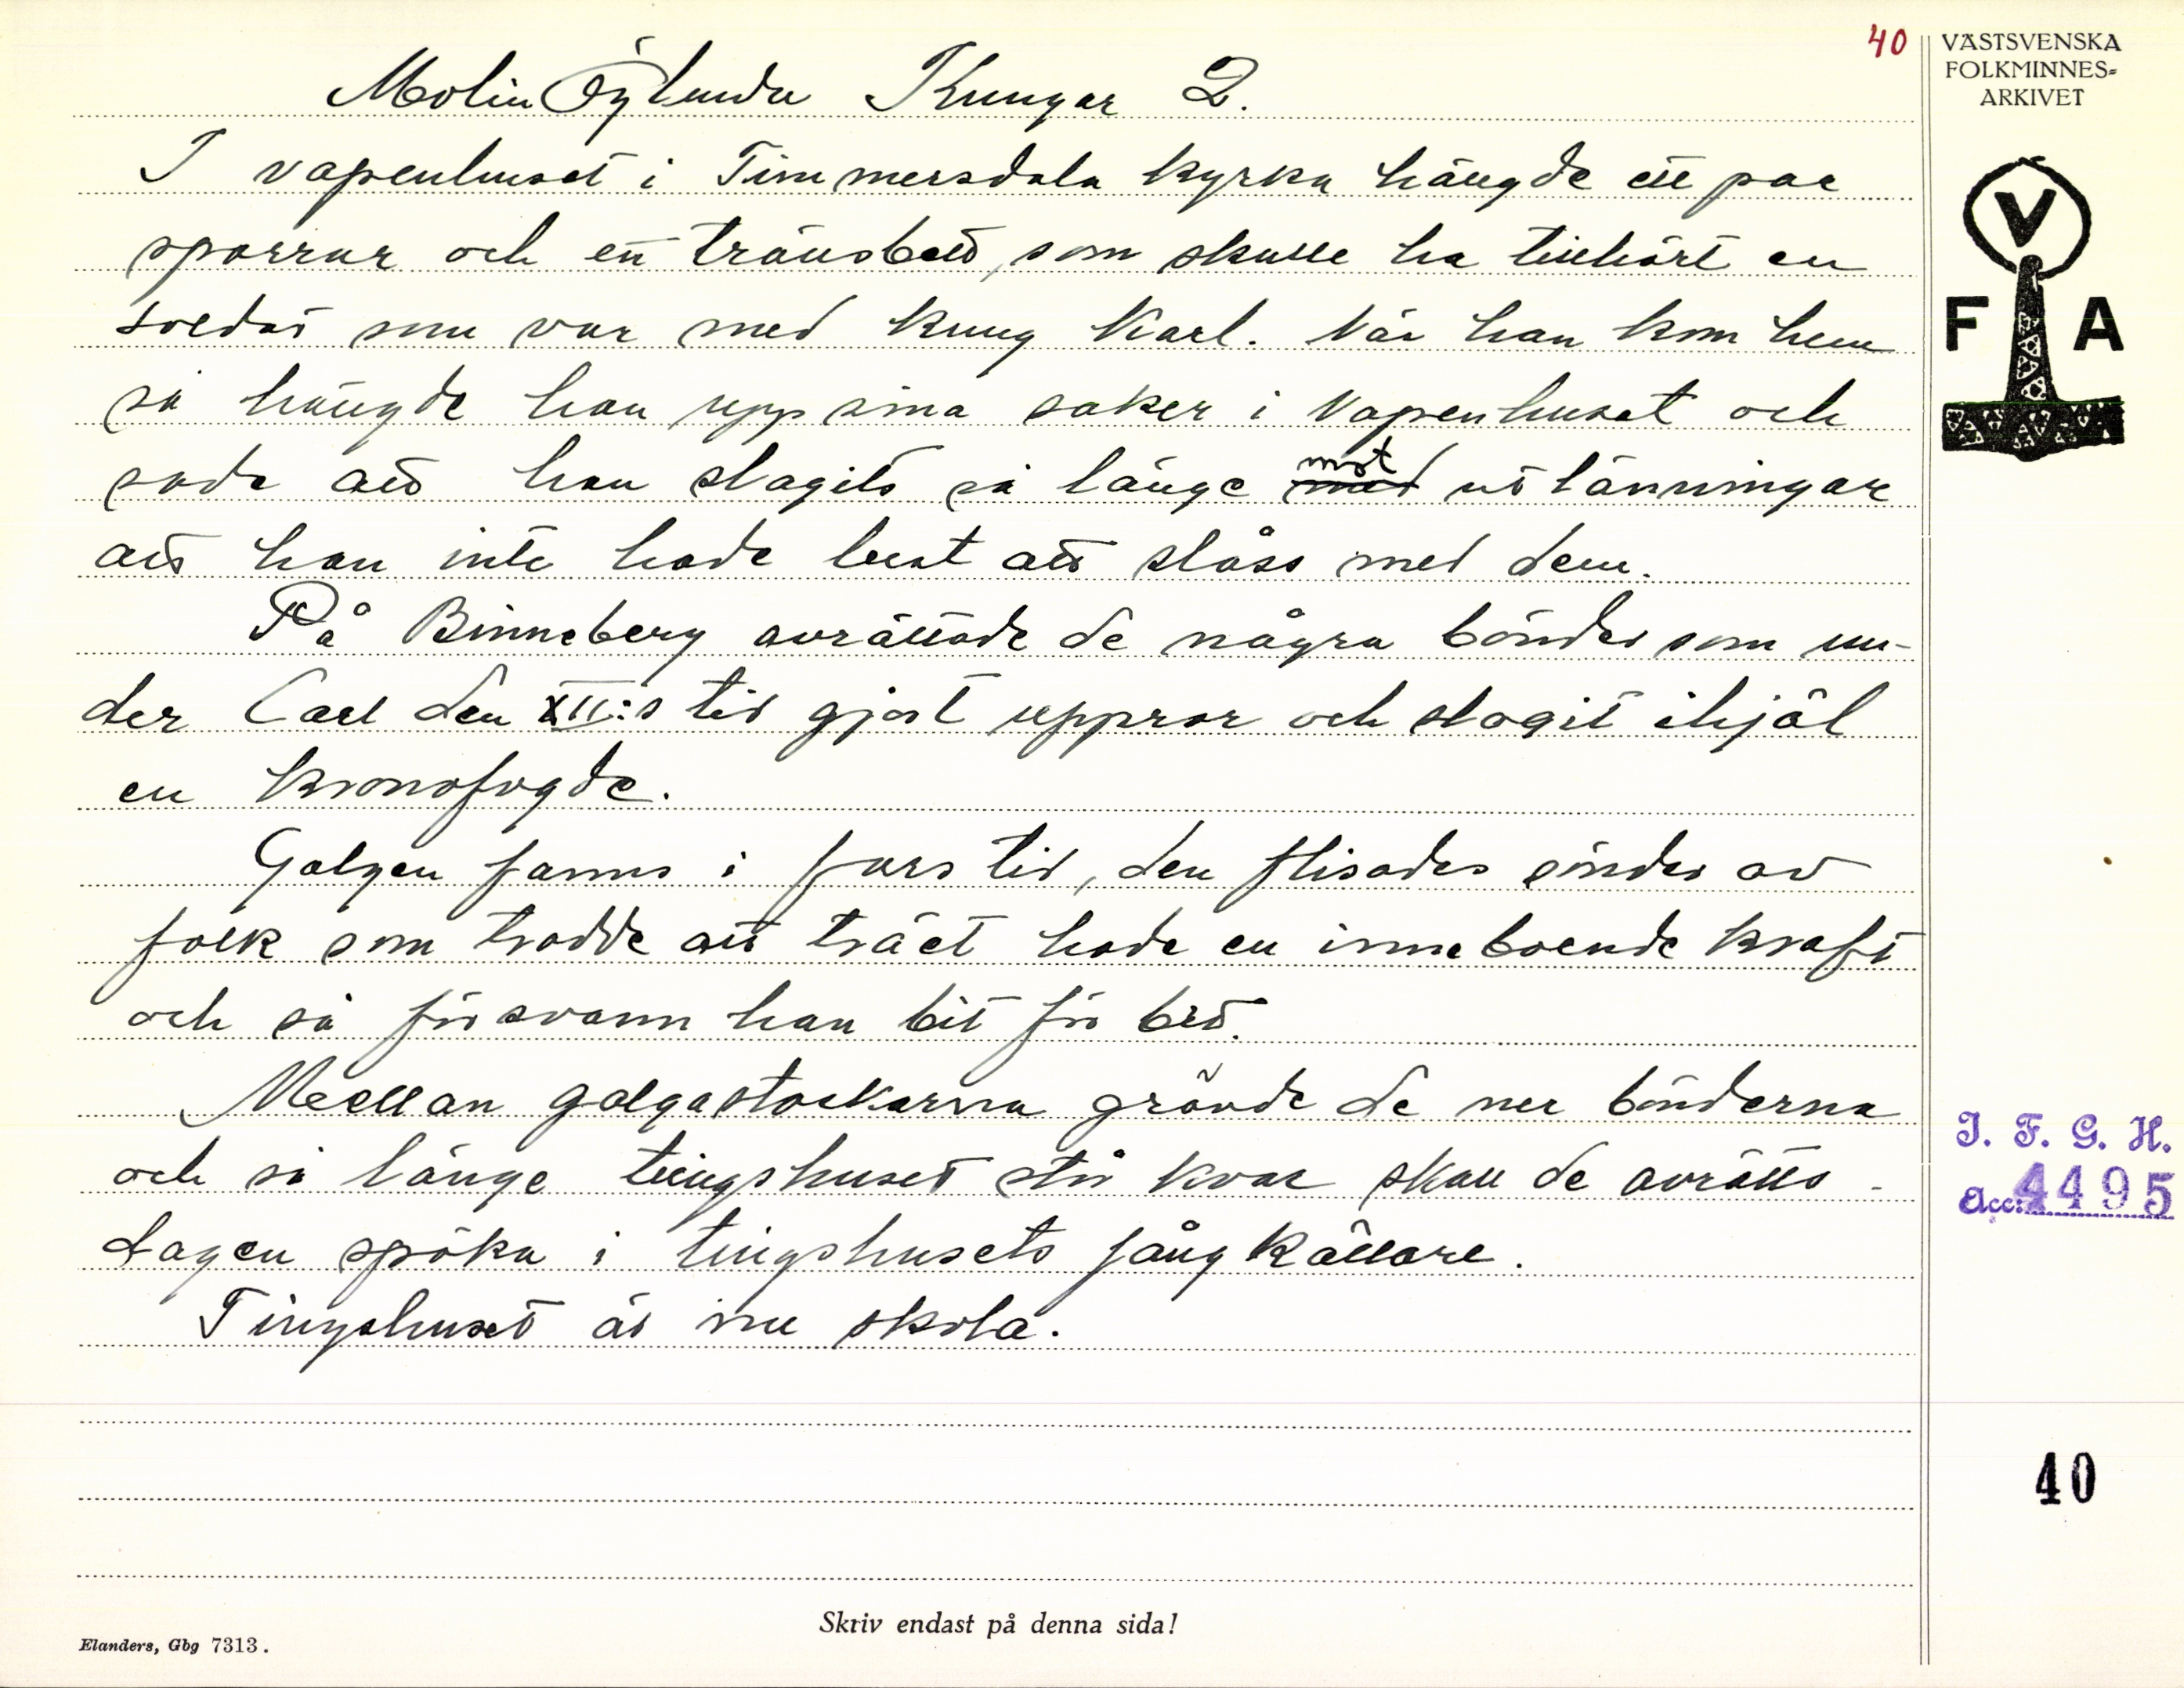 40
VÄSTSVENSKA
FOLKMINNES-
ARKIVET
V
F A
Molin Öglunda Kungar 2.
I vapenhuset i Timmersdala kyrka hängde ett par
sporrar och ett tränsbett, som skulle ha tillhört en
soldat som var med kung Karl. När han kom hem
så hängde han upp sina saker i vapenhuset och
sade att han slagits så länge mot utlänningar
att han inte hade lust att slåss med dem.
På Binneberg avrättade de några bönder som un-
der Carl den XII:s tid gjort uppror och slagit ihjäl
en kronofogde.
Galgen fanns i fars tid, den flisades sönder av
folk som trodde att träet hade en inneboende kraft
och så försvann han bit för bit.
Meellan galgastockarna grävde de ner bönderna
och så länge tingshuset står kvar skall de avrätts-
dagen spöka i tingshusets fångkällare.
Tingshuset är nu skola.
I. F. G. H.
Acc: 4495
40
Skriv endast på denna sida!
Elanders, Gbg 7313.